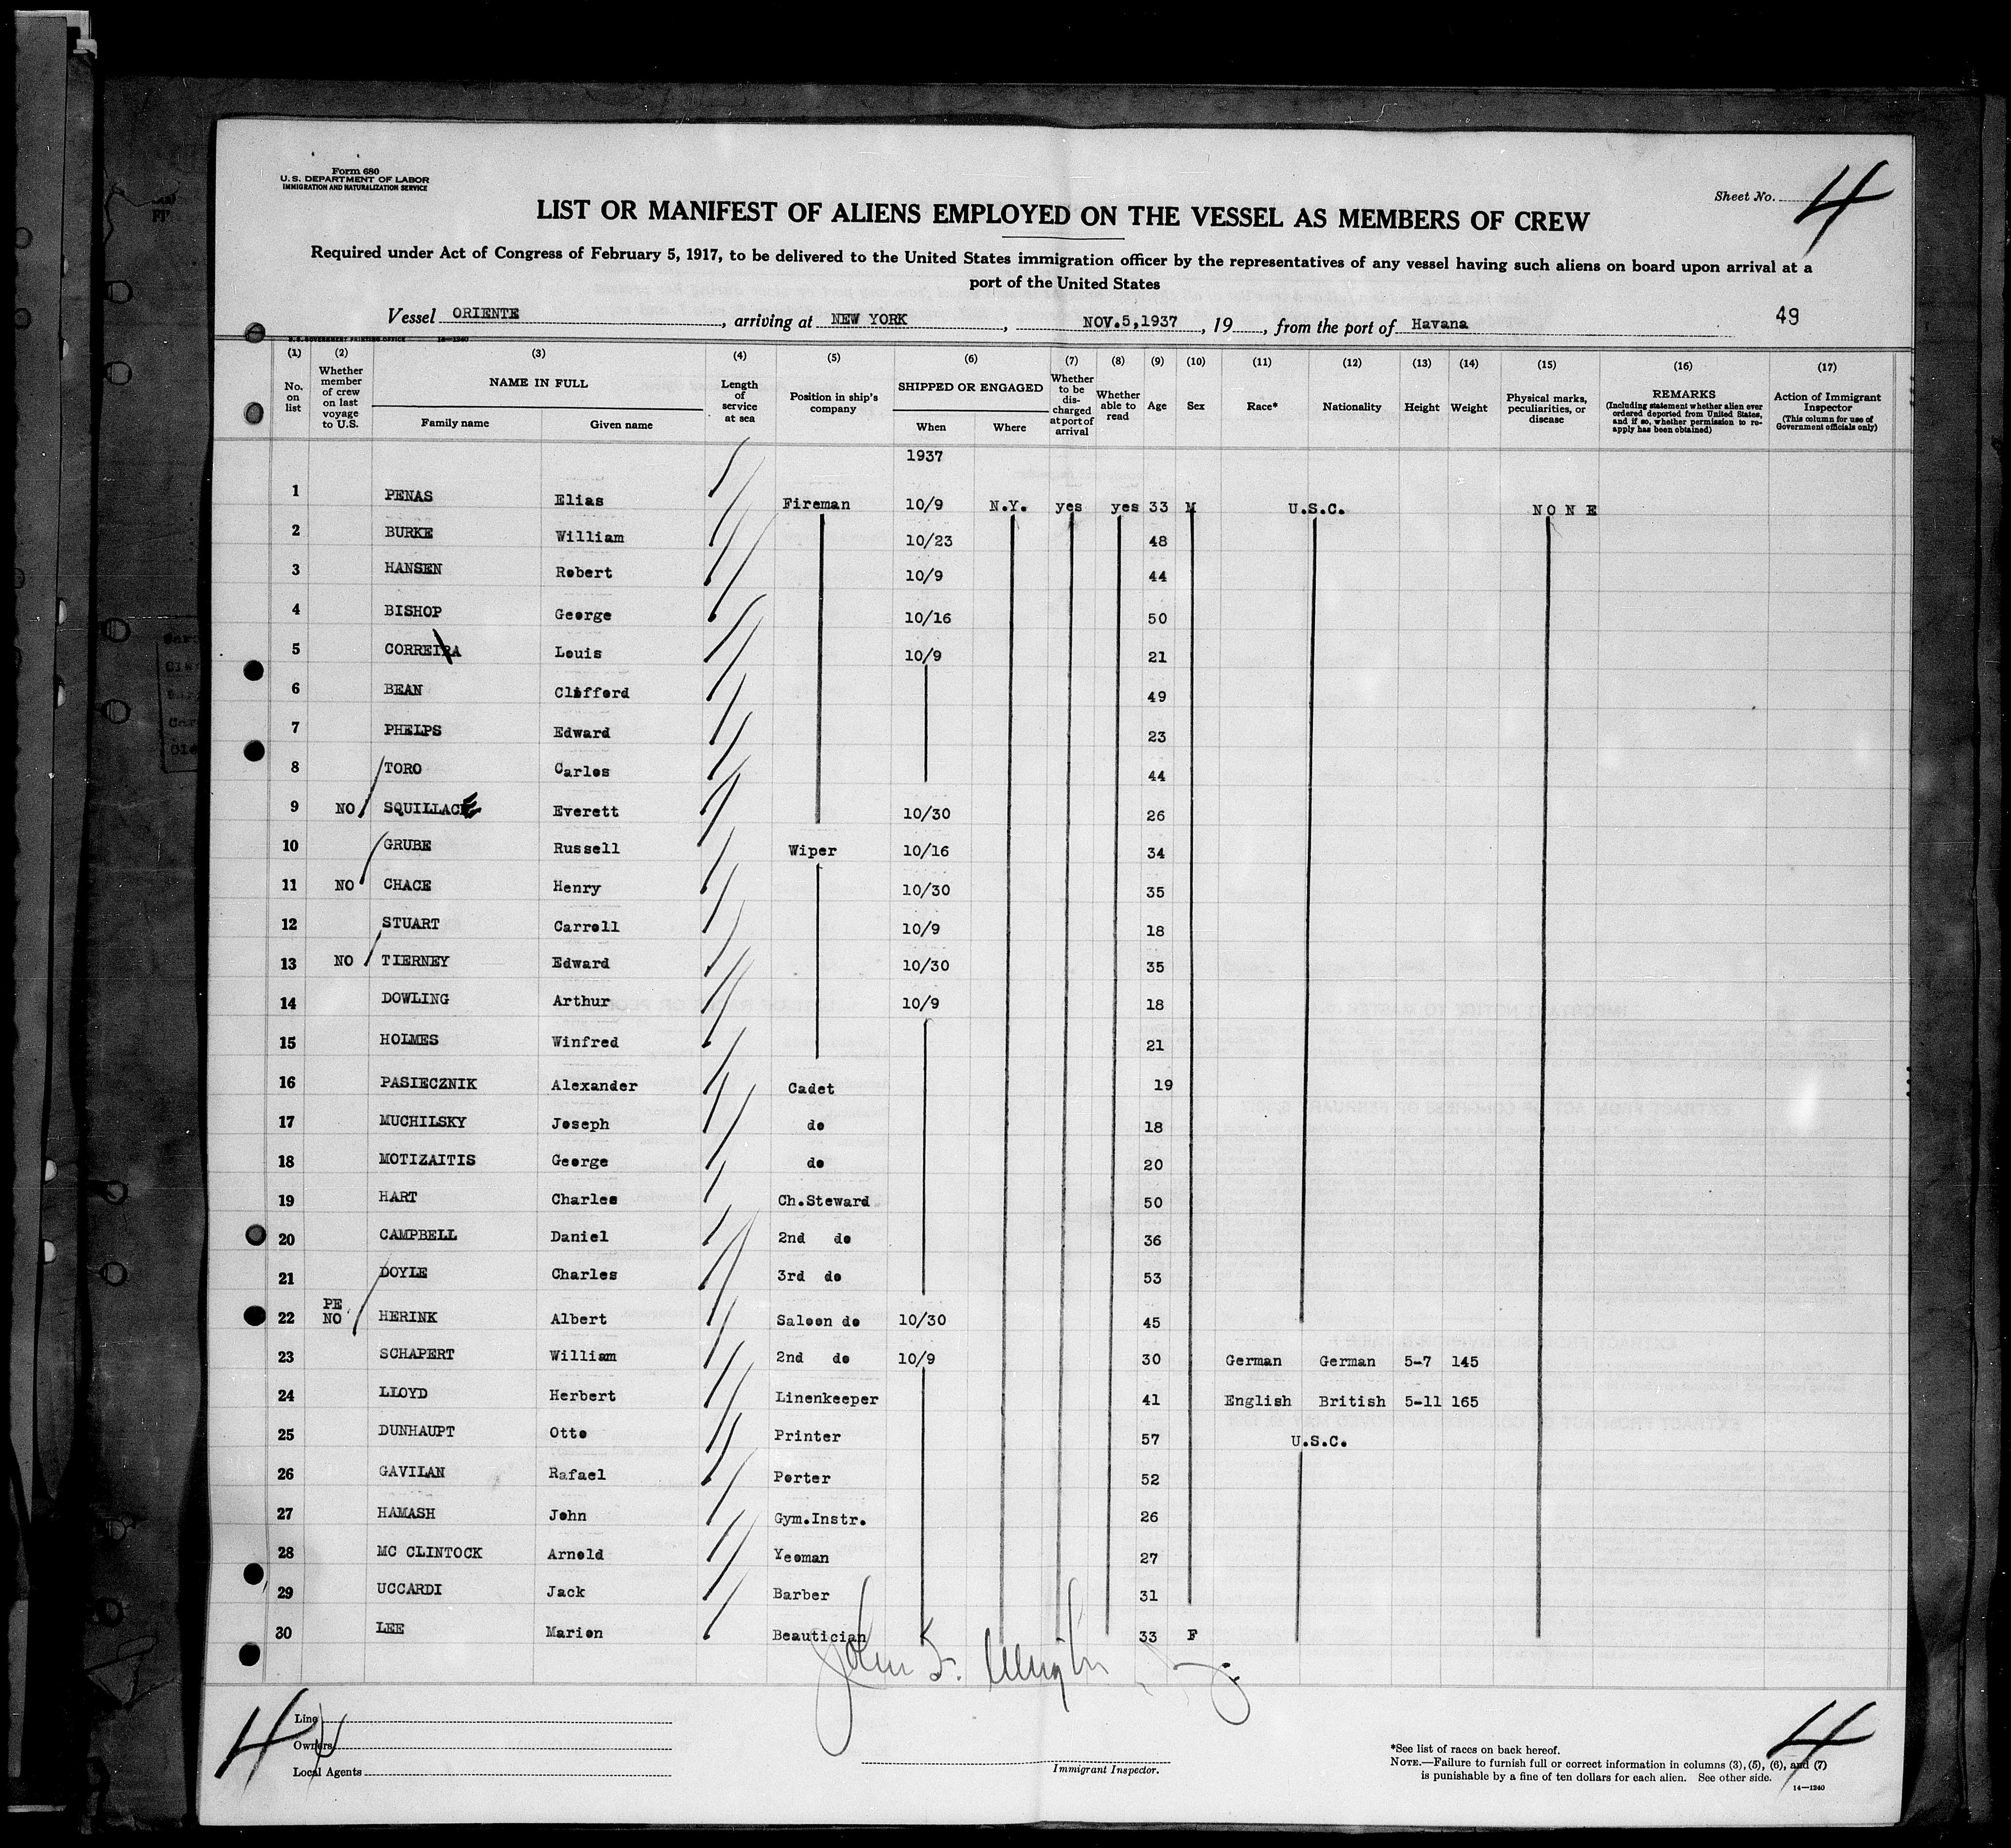 Form 680
U. S. DEPARTMENT OF LABOR
IMMIGRATION AND NATURALIZATION SERVICE
Sheet No. 4
LIST OR MANIFEST OF ALIENS EMPLOYED ON THE VESSEL AS MEMBERS OF CREW
Required under Act of Congress of February 5, 1917, to be delivered to the United States immigration officer by the representatives of any vessel having such aliens on board upon arrival at a
port of the United States
Vessel ORIENTE, arriving at NEW YORK, NOV.5,1937, 19, from the port of Havana
49
U.S. GOVERNMENT PRINTING OFFICE 14—1240
(1) (2) (3) (4) (5) (6) (7) (8) (9) (10) (11) (12) (13) (14) (15) (16) (17)
No. on list
Whether member of crew on last voyage to U.S.
NAME IN FULL
Family name
Given name
Length of service at sea
Position in ship's company
SHIPPED OR ENGAGED
When
Where
Whether to be discharged at port of arrival
Whether able to read
Age
Sex
Race*
Nationality
Height
Weight
Physical marks, peculiarities, or disease
REMARKS
(Including statement whether alien ever ordered deported from United States, and if so, whether permission to reapply has been obtained)
Action of Immigrant Inspector
(This column for use of Government officials only)
1937
1 PENAS Elias Fireman 10/9 N.Y. yes yes 33 M U.S.C. NONE
2 BURKE William 10/23 48
3 HANSEN Robert 10/9 44
4 BISHOP George 10/16 50
5 CORREIRA Louis 10/9 21
6 BEAN Clifford 49
7 PHELPS Edward 23
8 TORO Carlos 44
9 NO SQUILLACE Everett 10/30 26
10 GRUBE Russell Wiper 10/16 34
11 NO CHACE Henry 10/30 35
12 STUART Carroll 10/9 18
13 NO TIERNEY Edward 10/30 35
14 DOWLING Arthur 10/9 18
15 HOLMES Winfred 21
16 PASIECZNIK Alexander Cadet 19
17 MUCHILSKY Joseph do 18
18 MOTIZAITIS George do 20
19 HART Charles Ch.Steward 50
20 CAMPBELL Daniel 2nd do 36
21 DOYLE Charles 3rd do 53
22 PE NO HERINK Albert Saloon do 10/30 45
23 SCHAPERT William 2nd do 10/9 30 German German 5-7 145
24 LLOYD Herbert Linenkeeper 41 English British 5-11 165
25 DUNHAUPT Otto Printer 57 U.S.C.
26 GAVILAN Rafael Porter 52
27 HAMASH John Gym.Instr. 26
28 MC CLINTOCK Arnold Yeoman 27
29 UCCARDI Jack Barber 31
30 LEE Marion Beautician 33 F
John
4
Line
Owners
Local Agents
Immigrant Inspector.
*See list of races on back hereof.
NOTE.—Failure to furnish full or correct information in columns (3), (5), (6), and (7)
is punishable by a fine of ten dollars for each alien. See other side.
14—1240
4